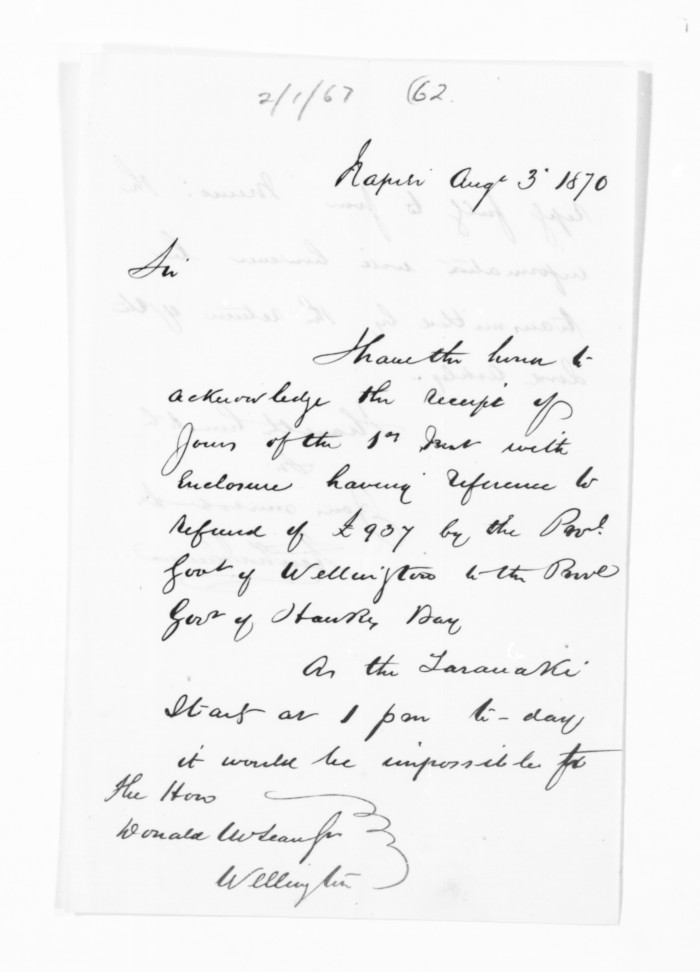 2/1/67 (62.
Napier Augt 3d 1870
Sir
I have the honor to
acknowledge the receipt of
Yours of the 1st Inst with
Enclosure having reference to
refund of £937 by the Provl.
Govt of Wellington to the Provl
Govt of Hawkes Bay
As the Taranaki
Starts at 1 pm to-day
it would be impossible to
The Hon
Donald McLean
Wellington